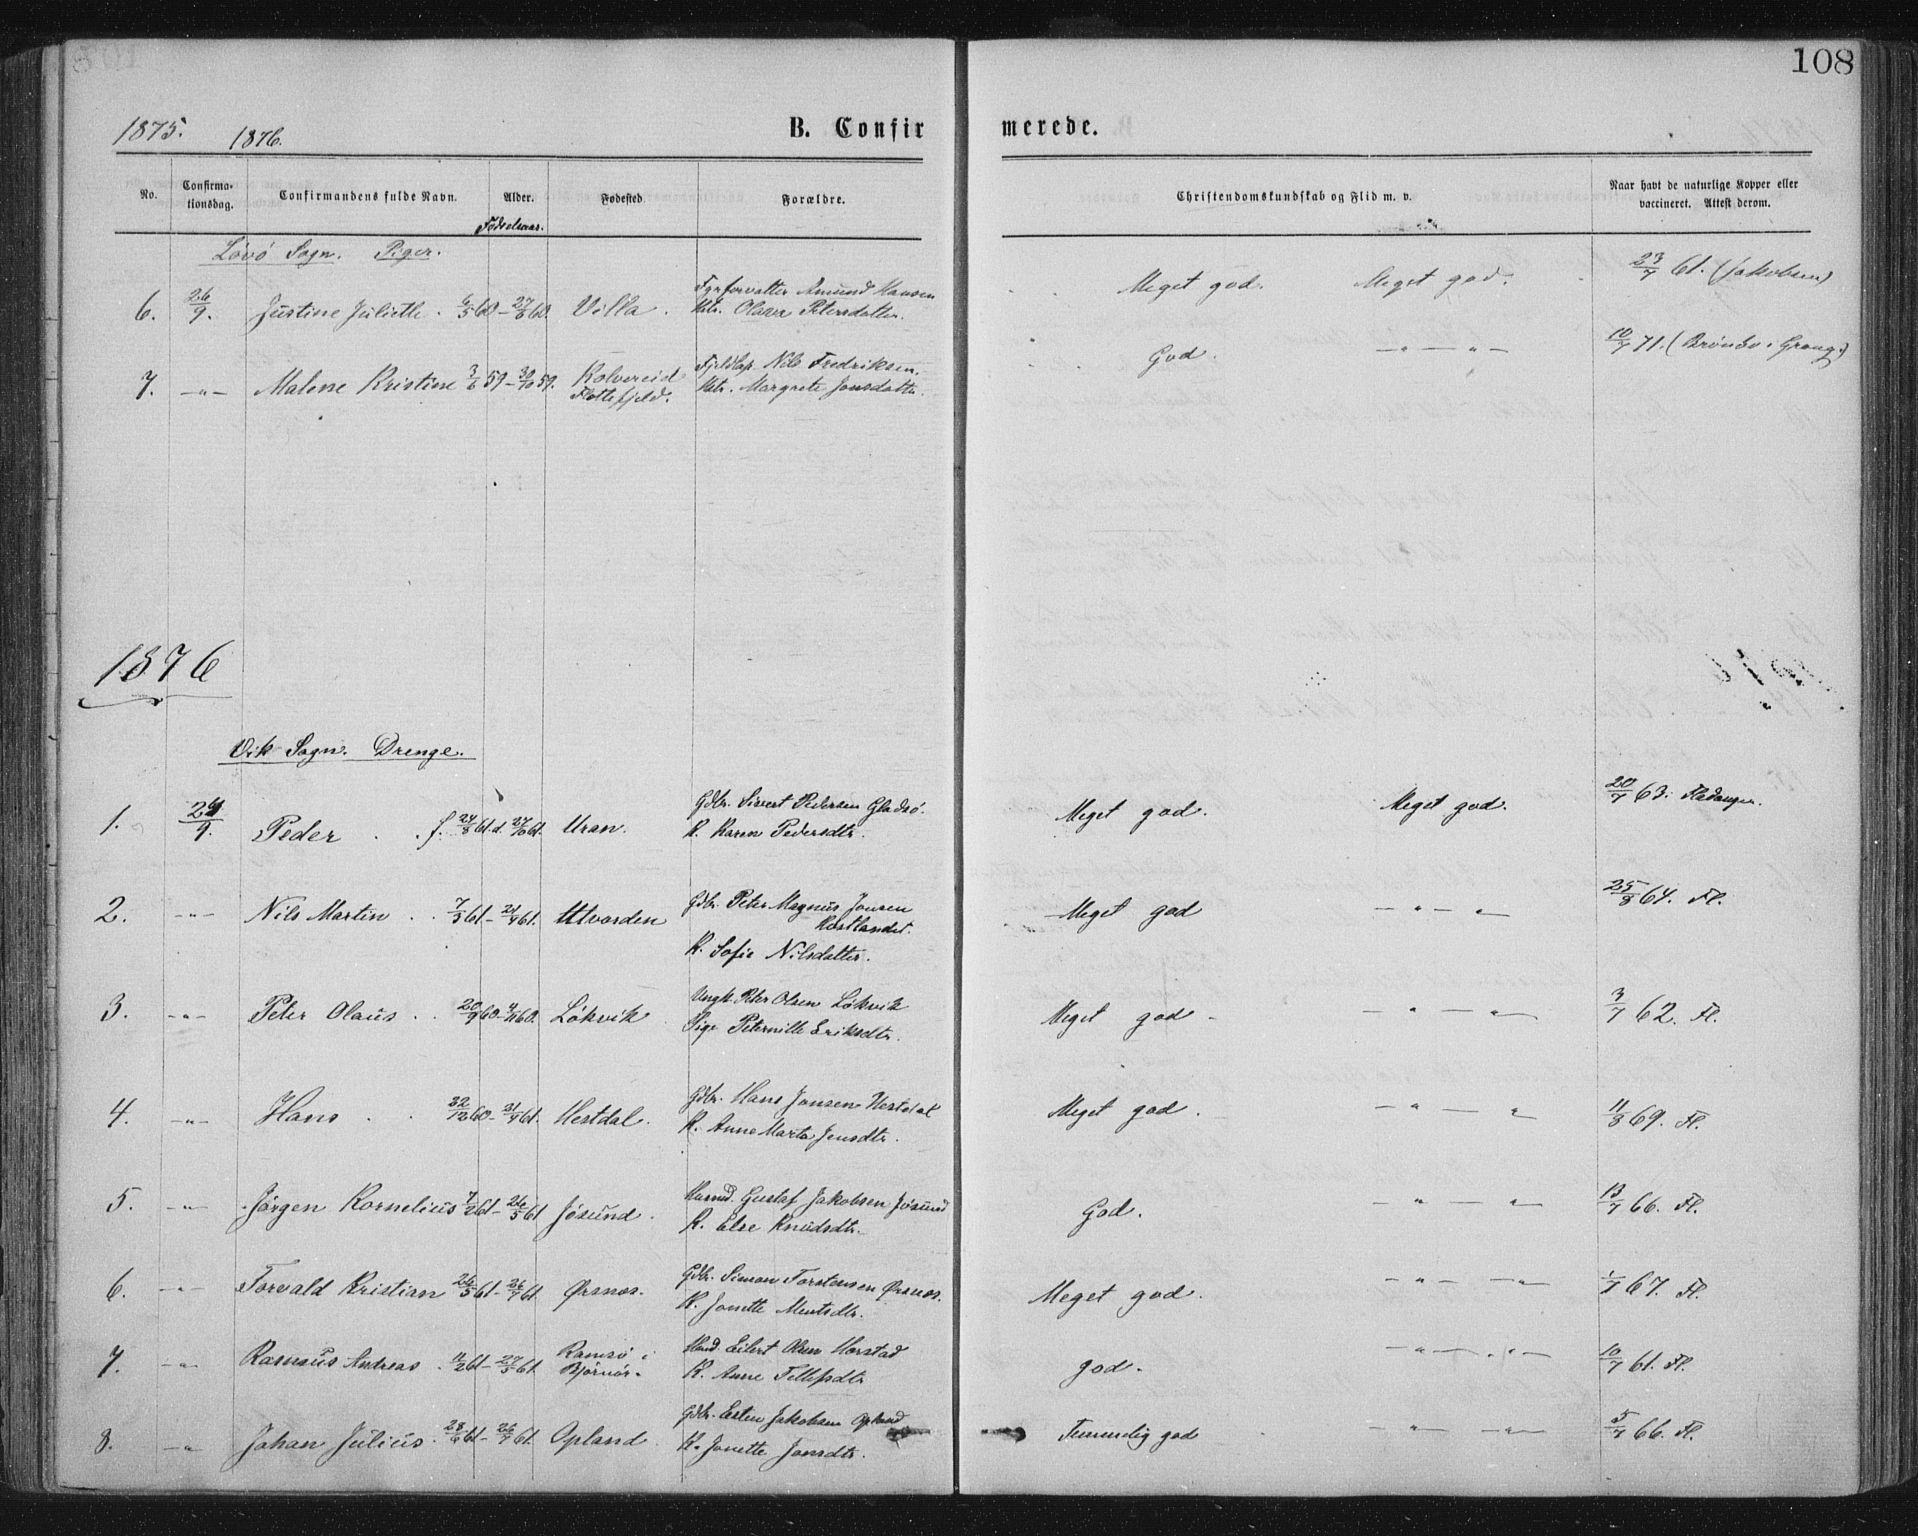 108
1875.
1876.
B. Confirmerede.
No.
Confirmationsdag.
Confirmandens fulde Navn.
Alder.
Fødselsaar.
Fødested
Forældre.
Christendomskundskab og Flid m. v.
Naar havt de naturlige Kopper eller vaccineret. Attest derom.
Lövö Sogn. Piger.
6. 26/9. Justine Juliette. 6/5 60 – 27/6 60. Villa. Fyrforvalter Amund Hansen
Hstr. Olava Petersdatter. Meget god. Meget god. 23/7 61. (Jakobsen)
7. –"– Malene Kristine 3/6 59 – 30/10 59. Kolvereid Fjeldlap. Nils Fredriksen.
Flottefjeld. Hstr. Margrete Jonsdatter. God. –"–"– 10/7 71. (Brönbo i Grong)
1876
Vik Sogn. Drenge.
1. 24/9. Peder . . f. 24/8 61. d. 27/10 61. Uran. Gdbr. Sivert Pedersen Gladsö.
K. Karen Pedersdtr. Meget god. Meget god. 20/7 63. Fladanger.
2. –"– Nils Martin . . 7/3 61 – 21/4 61. Utvorden Gdbr. Peter Magnus Jonsen
K. Sofie Nilsdatter. Meget god –"–"– 25/8 64. Fl.
3. –"– Peter Olaus . . 20/9 60 – 4/11 60. Lökvik Ungk. Peter Olsen Lökvik
Pige Peternille Eriksdtr. Meget god – –"–"– 3/7 62. Fl.
4. –"– Hans . . 22/12 60 – 21/4 61. Hestdal. Gdbr. Hans Jonsen Hestdal
K. Anne Marta Jensdtr. Meget god. –"–"– 11/8 69. Fl.
5. –"– Jörgen Kornelius 7/2 61 – 26/5 61 Jösund. Husmd. Gustaf Jakobsen Jösund
K. Else Knudsdtr. God. –"–"– 13/7 66. Fl.
6. –"– Torvald Kristian 26/5 61 – 26/7 61 Ørsnes. Gdbr. Simon Torstensen Ørsnes.
K. Jonette Mentsdtr. Meget god. –"–"– 1/7 67. Fl.
7. –"– Rasmus Andreas . 11/2 61 – 27/5 61 Ramsö i Hmd. Eilert Olsen Horstad
Björnör. K. Anne Tellefsdtr god. –"–"– 10/7 61. Fl.
8. –"– Johan Julius. 28/6 61 – 26/7 61. Opland. Gdbr. Esten Jakobsen Opland
K. Jonette Jonsdtr. Temmelig god –"–"– 5/7 66. Fl.